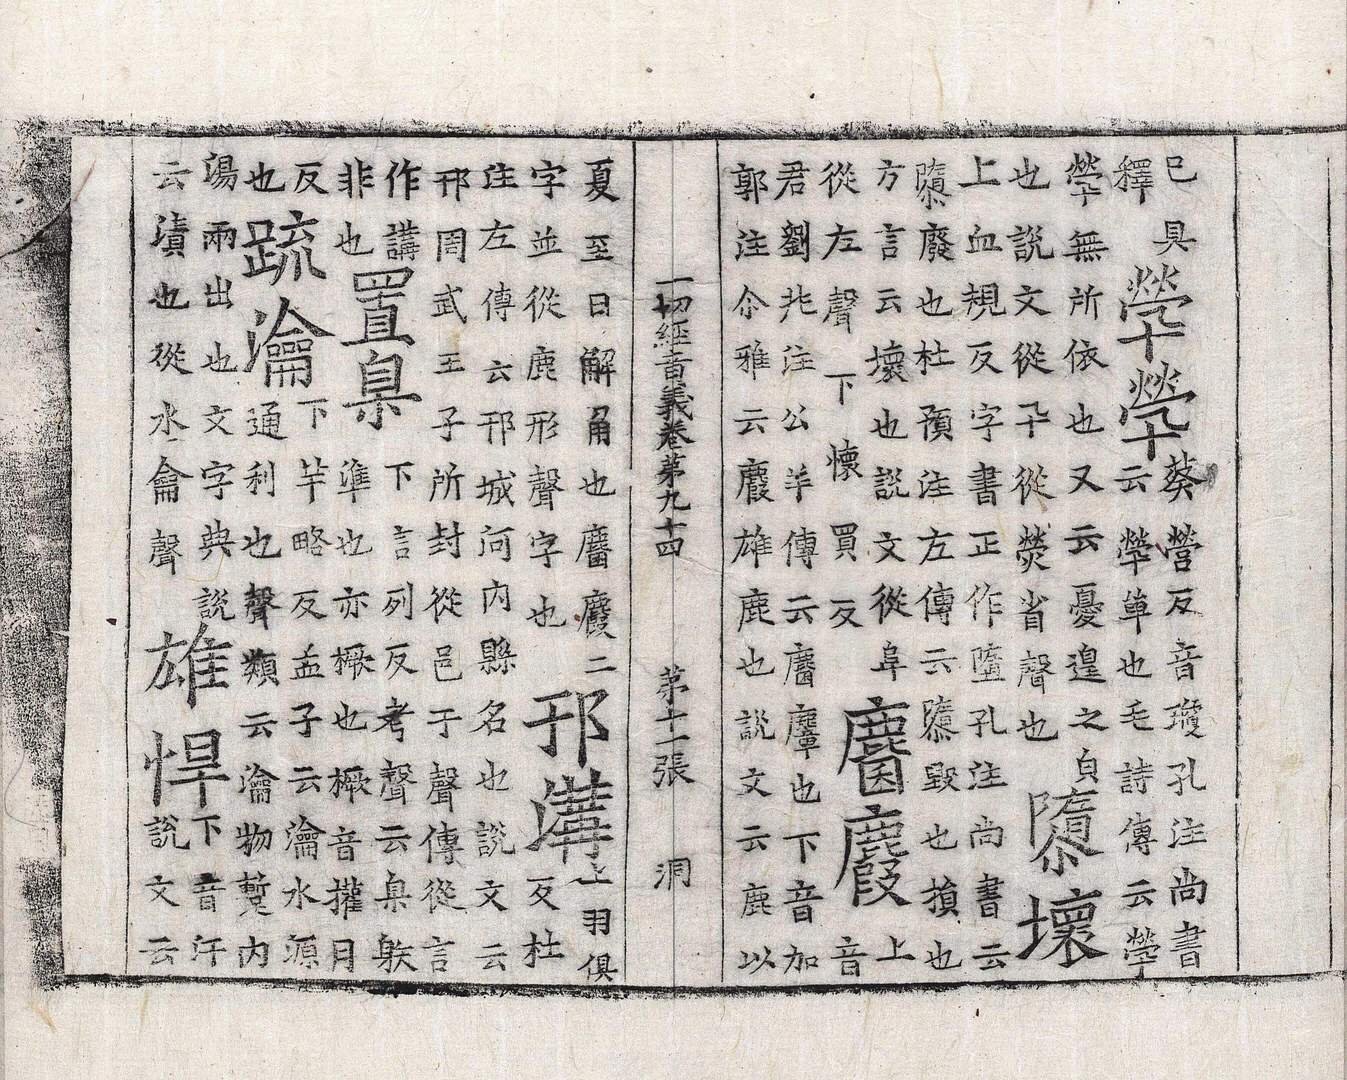 巳具
釋
煢煢
葵營反音瓊孔注尚書
云煢單也毛詩傳云煢
煢無所依也又云憂遑之皃
也說文從卂從熒省聲也
隳壞
上血規反字書正作墮孔注尚書云
隳廢也杜預注左傳云隳毀也損也
方言云壞也說文從阜
從左聲下懷買反
麕麚
上
音
君劉兆注公羊傳云麕麞也下音加
郭注尒雅云麚雄鹿也說文云鹿以
一切經音義卷第九十四 第十一張 洞
夏至日解角也麕麚二
字並從鹿形聲字也
邘溝
上羽俱
反杜
注左傳云邘城河內縣名也說文云
邘周武王子所封從邑于聲傳從言
作講
非也
置臬
下言列反考聲云臬躲
準也亦橛也橛音權月
反
也
疏瀹
下羊略反孟子云瀹水源
通利也聲類云瀹物蹔內
湯兩出也文字典說
云瀆也從水龠聲
雄悍
下音汗
說文云